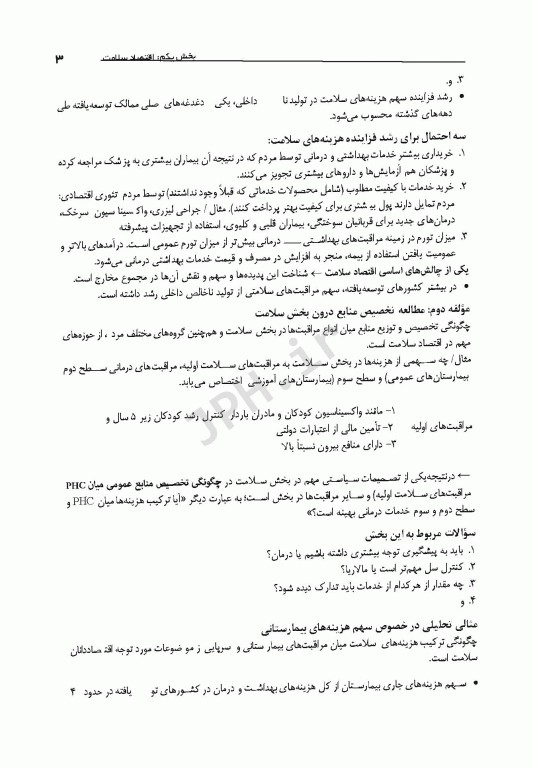 بخش یکم: اقتصاد سلامت ۳
۳. و.
• رشد فزاینده سهم هزینه‌های سلامت در تولید نا داخلی، یکی دغدغه‌های صلی ممالک توسعه‌یافته طی
دهه‌های گذشته محسوب می‌شود.
سه احتمال برای رشد فزاینده هزینه‌های سلامت:
۱. خریداری بیشتر خدمات بهداشتی و درمانی توسط مردم که در نتیجه آن بیماران بیشتری به پزشک مراجعه کرده
و پزشکان هم آزمایش‌ها و داروهای بیشتری تجویز می‌کنند.
۲. خرید خدمات با کیفیت مطلوب (شامل محصولات خدماتی که قبلاً وجود نداشتند) توسط مردم تئوری اقتصادی:
مردم تمایل دارند پول بیشتری برای کیفیت بهتر پرداخت کنند). مثال / جراحی لیزری، واکسیناسیون سرخک،
درمان‌های جدید برای قربانیان سوختگی، بیماران قلبی و کلیوی، استفاده از تجهیزات پیشرفته
۳. میزان تورم در زمینه مراقبت‌های بهداشتی درمانی بیش‌تر از میزان تورم عمومی است. درآمدهای بالاتر و
عمومیت یافتن استفاده از بیمه، منجر به افزایش در مصرف و قیمت خدمات بهداشتی درمانی می‌شود.
یکی از چالش‌های اساسی اقتصاد سلامت ← شناخت این پدیده‌ها و سهم و نقش آن‌ها در مجموع مخارج است.
• در بیشتر کشورهای توسعه‌یافته، سهم مراقبت‌های سلامتی از تولید ناخالص داخلی رشد داشته است.
مؤلفه دوم: مطالعه تخصیص منابع درون بخش سلامت
چگونگی تخصیص و توزیع منابع میان انواع مراقبت‌ها در بخش سلامت و هم‌چنین گروه‌های مختلف مرد ، از حوزه‌های
مهم در اقتصاد سلامت است.
مثال/ چه سهمی از هزینه‌ها در بخش سلامت به مراقبت‌های سلامت اولیه، مراقبت‌های درمانی سطح دوم
بیمارستان‌های عمومی) و سطح سوم (بیمارستان‌های آموزشی اختصاص می‌یابد.
۱- مانند واکسیناسیون کودکان و مادران باردار کنترل رشد کودکان زیر ۵ سال و
مراقبت‌های اولیه ۲- تأمین مالی از اعتبارات دولتی
۳- دارای منافع بیرون نسبتاً بالا
← درنتیجه‌یکی از تصمیمات سیاستی مهم در بخش سلامت در چگونگی تخصیص منابع عمومی میان PHC
مراقبت‌های سلامت اولیه) و سایر مراقبت‌ها در بخش است؛ به عبارت دیگر «آیا ترکیب هزینه‌ها میان PHC و
سطح دوم و سوم خدمات درمانی بهینه است؟»
سؤالات مربوط به این بخش
۱. باید به پیشگیری توجه بیشتری داشته باشیم یا درمان؟
۲. کنترل سل مهم‌تر است یا مالاریا؟
۳. چه مقدار از هر کدام از خدمات باید تدارک دیده شود؟
۴. و
مثالی تحلیلی در خصوص سهم هزینه‌های بیمارستانی
چگونگی ترکیب هزینه‌های سلامت میان مراقبت‌های بیمارستانی و سرپایی ز موضوعات مورد توجه اقتصاددانان
سلامت است.
• سهم هزینه‌های جاری بیمارستان از کل هزینه‌های بهداشت و درمان در کشورهای تو یافته در حدود ۴
JPH.ir